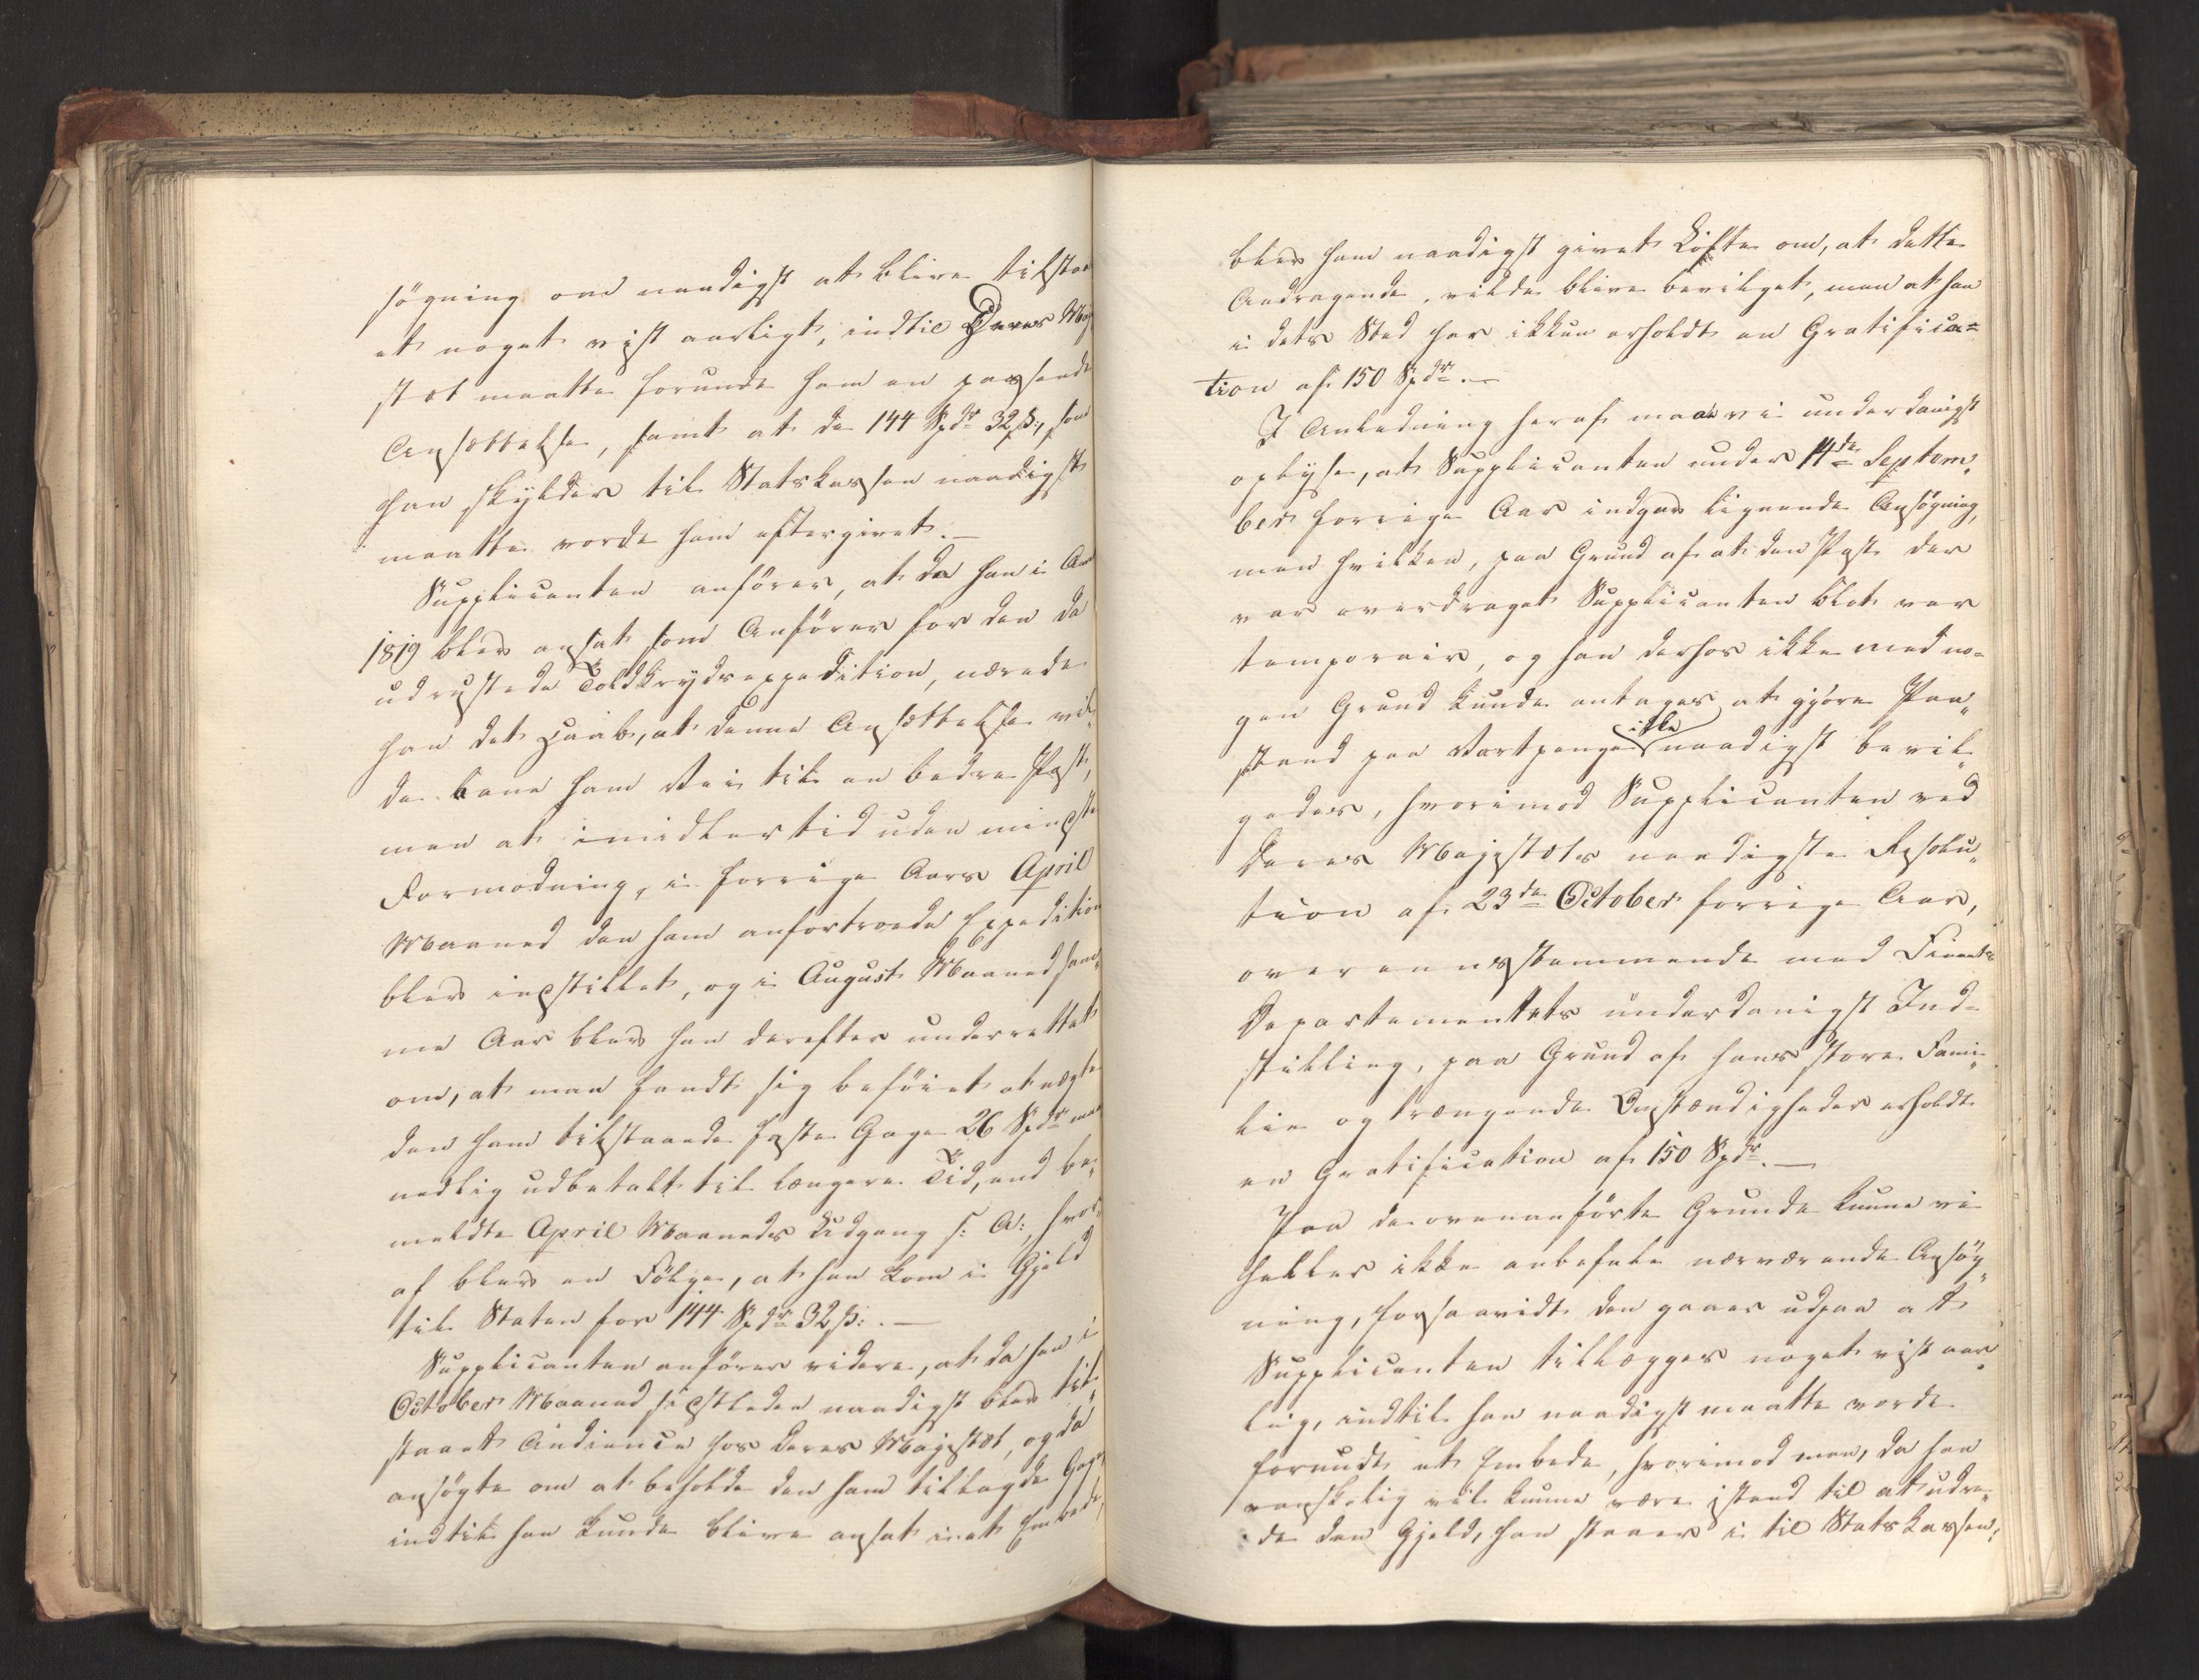 søgning om naadigst at blive tilstaa
et noget vist aarligt, indtil Deres Maj
stæt maatte forunde ham en passende
Ansættelse, samt at de 144 Spdr 32 ß, som
han skylder til Statskassen naadigst
maatte vorde ham eftergivet. —
Supplicanten anfører, at da han i Aar
1819 blev ansat som Anfører for den da
udrustede Toldkrydsexpedition, nærede
han det Haab, at denne Ansættelse vil„
de bane ham Vei til en bedre Post,
men at imidlertid uden mindste
Formodning, i forrige Aars April
Maaned den ham anfortroede Expedition
blev indstillet, og i August Maaned sam„
me Aar blev han derefter underrettet
om, at man fandt sig beføiet at nægte
den ham tilstaaede faste Gage 26 Spdr maa
nedlig udbetalt til længere Tid, end be„
meldte April Maaneds Udgang f: A:, hvor„
af blev en Følge, at han kom i Gjeld
til Staten for 144 Spdr 32 ß: . —
Supplicanten anfører videre, at da han i
October Maaned sidstleden naadigst blev til„
staaet Audience hos Deres Majestæt, og da
ansøgte om at beholde den ham tillagde Gage
indtil han kunde blive ansat i et Embede,
blev ham naadigst givet Løfte om, at dette
Andragende vilde blive bevilget, men at han
i dets Sted har ikkun erholdt en Gratifica=
tion af 150 Spdr. —
I Anledning heraf maae vi underdanigst
oplyse, at Supplicanten under 14de Septem„
ber forrige Aar indgav lignende Ansøgning,
men hvilken, paa Grund af at den Post der
var overdraget Supplicanten blot var
temporair, og han derhos ikke med no=
gen Grund kunde antages at gjøre Paa„
stand paa Vartpenge ikke naadigst bevil„
gedes, hvorimod Supplicanten ved
Deres Majestæts naadigste Resolu„
tion af 23de October forrige Aar,
overeensstemmende med Finants
Departementets underdanigst Ind=
stilling, paa Grund af hans store Fami„
lie og trængende Omstændigheder erholdt
en Gratification af 150 Spdr. —
Paa de ovenanførte Grunde kunne vi
heller ikke anbefale nærværende Ansøg„
ning, forsaavidt den gaaer udpaa at
Supplicanten tillægges noget vist aar„
lig, indtil han naadigst maatte vorde
forundt et Embede, hvorimod man, da han
vanskelig vil kunne være istand til at udre„
de den Gjeld, han staaer i til Statskassen,